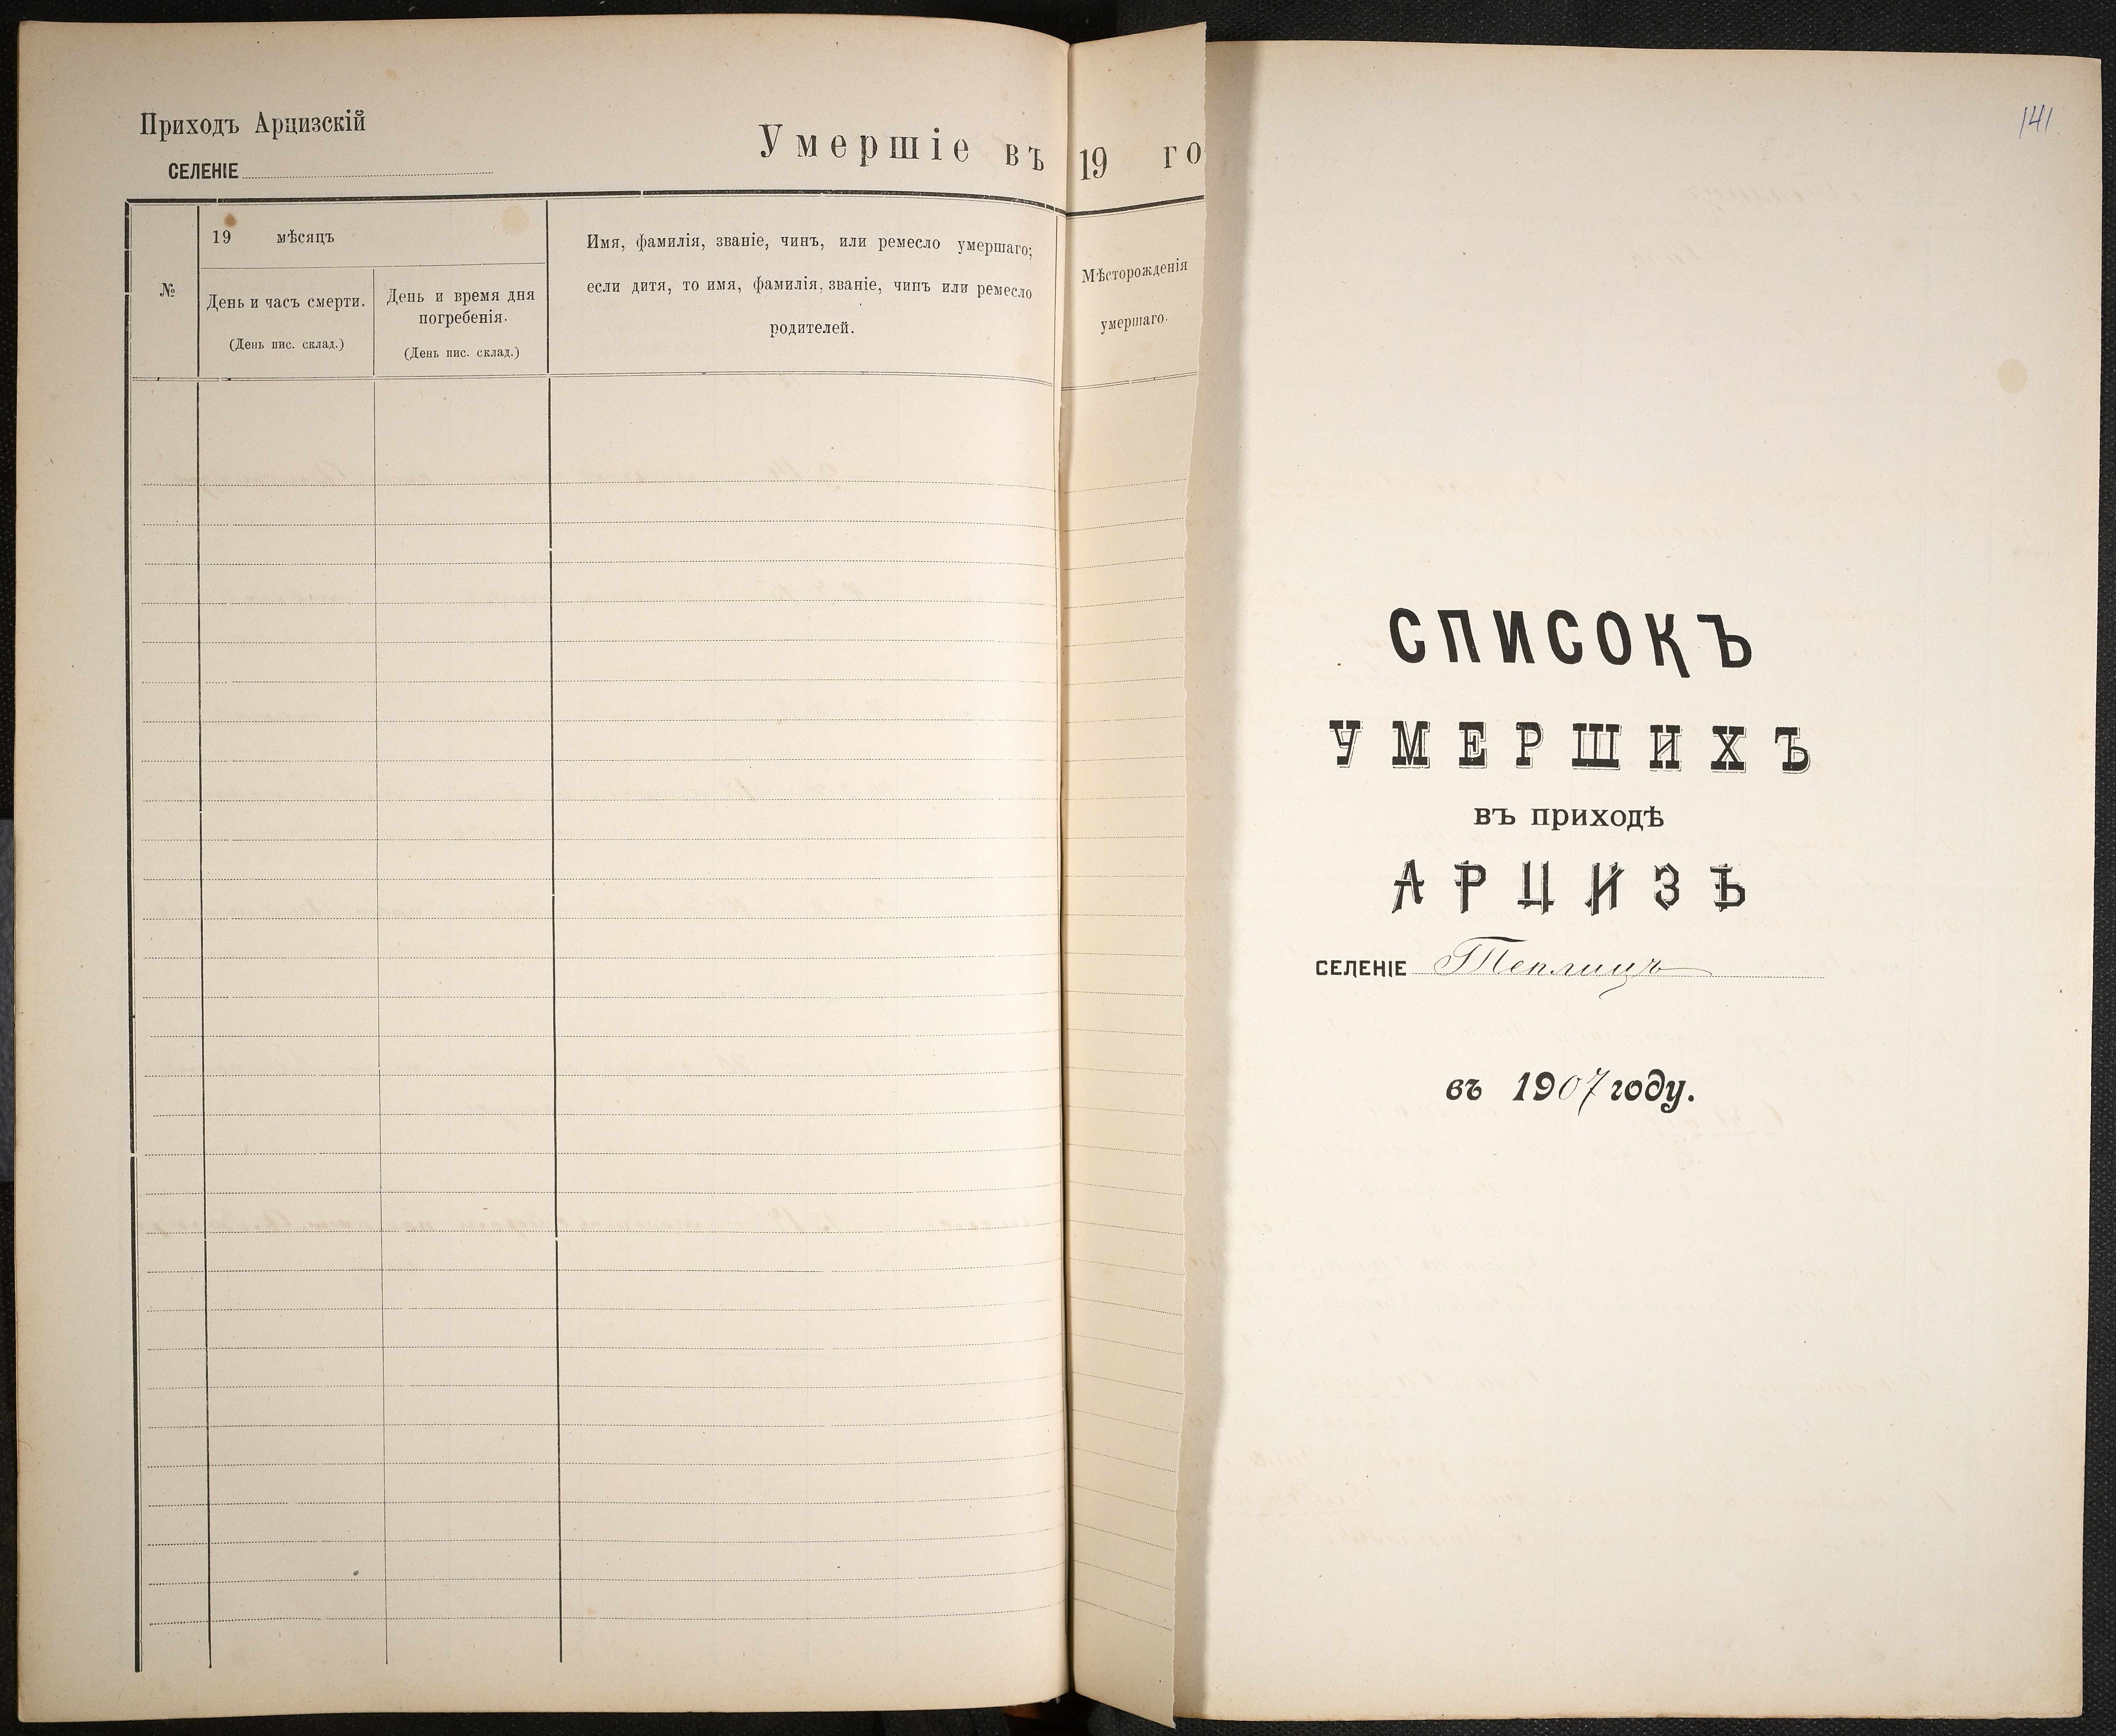 Приходъ Арцизскій
СЕЛЕНІЕ
Умершіе въ 19 го
№
19 мѣсяцъ
День и часъ смерти.
(День пис. склад.)
День и время дня
погребенія.
(День пис. склад.)
Имя, фамилія, званіе, чинъ, или ремесло умершаго;
если дитя, то имя, фамилія, званіе, чинъ или ремесло
родителей.
Мѣсторожденія
умершаго.
141
СПИСОКЪ
УМЕРШИХЪ
въ приходѣ
АРЦИЗѢ
СЕЛЕНІЕ Теплицъ
въ 1907 году.